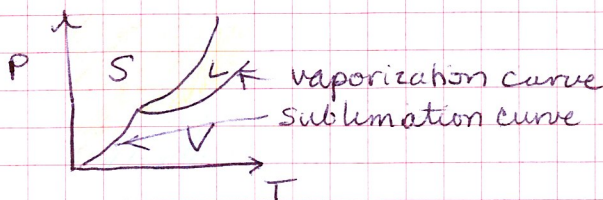 P
S
L
vaporization curve
sublimation curve
V
T